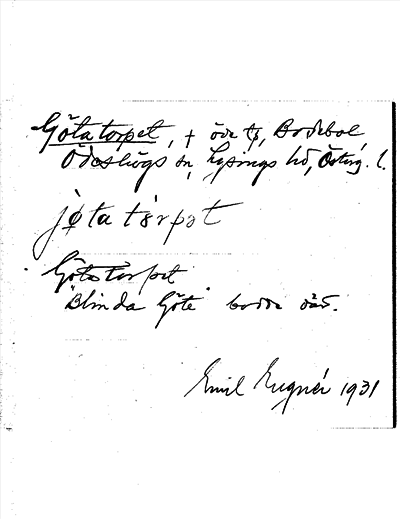 Götatorpet, † öde tp, Bodebol,
Ödeshögs sn, Lysings hd, Östg. l.
jøtatorpət
Götatorpet
"Blinda Göte" bodde där.
Emil Eugnér 1931